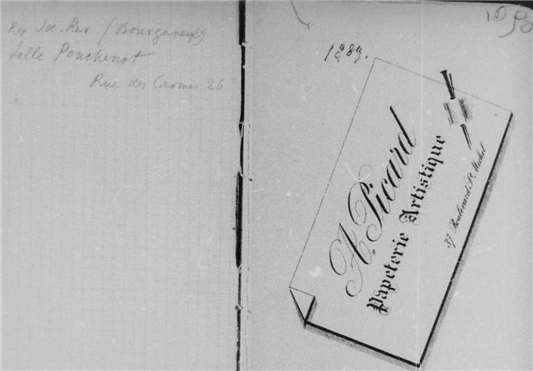 Rep Soc. Rev (Bourganeuf)
Salle Pouchenot
Rue des Carmes 26
1889.
A. Picard
Papeterie Artistique
37 Boulevard St Michel